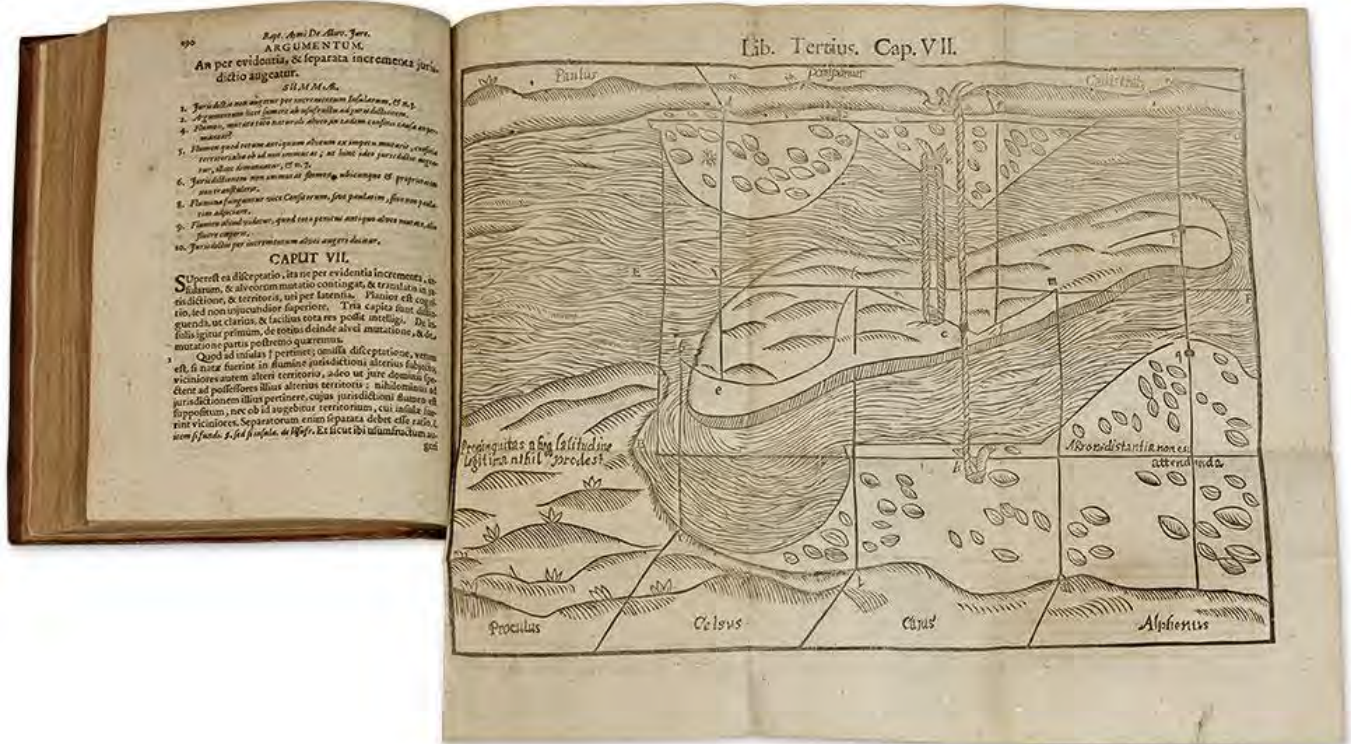 190 Bapt. Aymi De Alluv. Jure.
ARGUMENTUM.
An per evidentia, & separata incrementa juris-
dictio augeatur.
SUMMÆ.
1. Jurisdictio non augetur per incrementum Insularum, & n. 3.
2. Argumentum licet sumere ab usufructu ad jurisdictionem.
4. Flumen, mutato toto naturali alveo, an eadem confinia
5. Flumen quod totum antiquum alveum ex impetu mutavit, confinia
territorialia
6. Jurisdictionem non immutat flumen, ubicunque & proprietatem
non translatam.
8. Flumina funguntur vice Censitorum, sive paulatim, sive non paula-
tim adjiciant.
9. Flumen aliud videtur, quod toto penitus antiquo alveo mutato, alia
fluere cœperit.
10. Jurisdictio per incrementum alvei augeri dicitur.
CAPUT VII.
SUperest ea disceptatio, ita ne per evidentia incrementa, in-
sularum, & alveorum mutatio contingat, & translatio in ju-
risdictione, & territoriis, uti per latentia. Planior est cogni-
tio, sed non injucundior superiore. Tria capita sunt distin-
guenda, ut clarius, & facilius tota res possit intelligi. De in-
sulis igitur primum, de totius deinde alvei mutatione, & de
mutatione partis postremo quæremus.
1 Quod ad insulas † pertinet; omissa disceptatione, verum
est, si natæ fuerint in flumine jurisdictioni alterius subjecto,
viciniores autem alteri territorio, adeo ut jure dominii spe-
ctent ad possessores illius alterius territorii; nihilominus ad
jurisdictionem illius pertinere, cujus jurisdictioni flumen est
suppositum, nec ob id augebitur territorium, cui insulæ fue-
rint viciniores. Separatorum enim separata debet esse ratio, l.
item si fundi. §. sed si insula. de usufr. Et sicut ibi usumfructum au-
geri
Lib. Tertius. Cap. VII.
Paulus Pomponius
E
F
m
c
e
q
Propinquitas absq latitudine
legitima nihil prodest
distantia non est
attendenda
Proculus Celsus Caius Alphenus